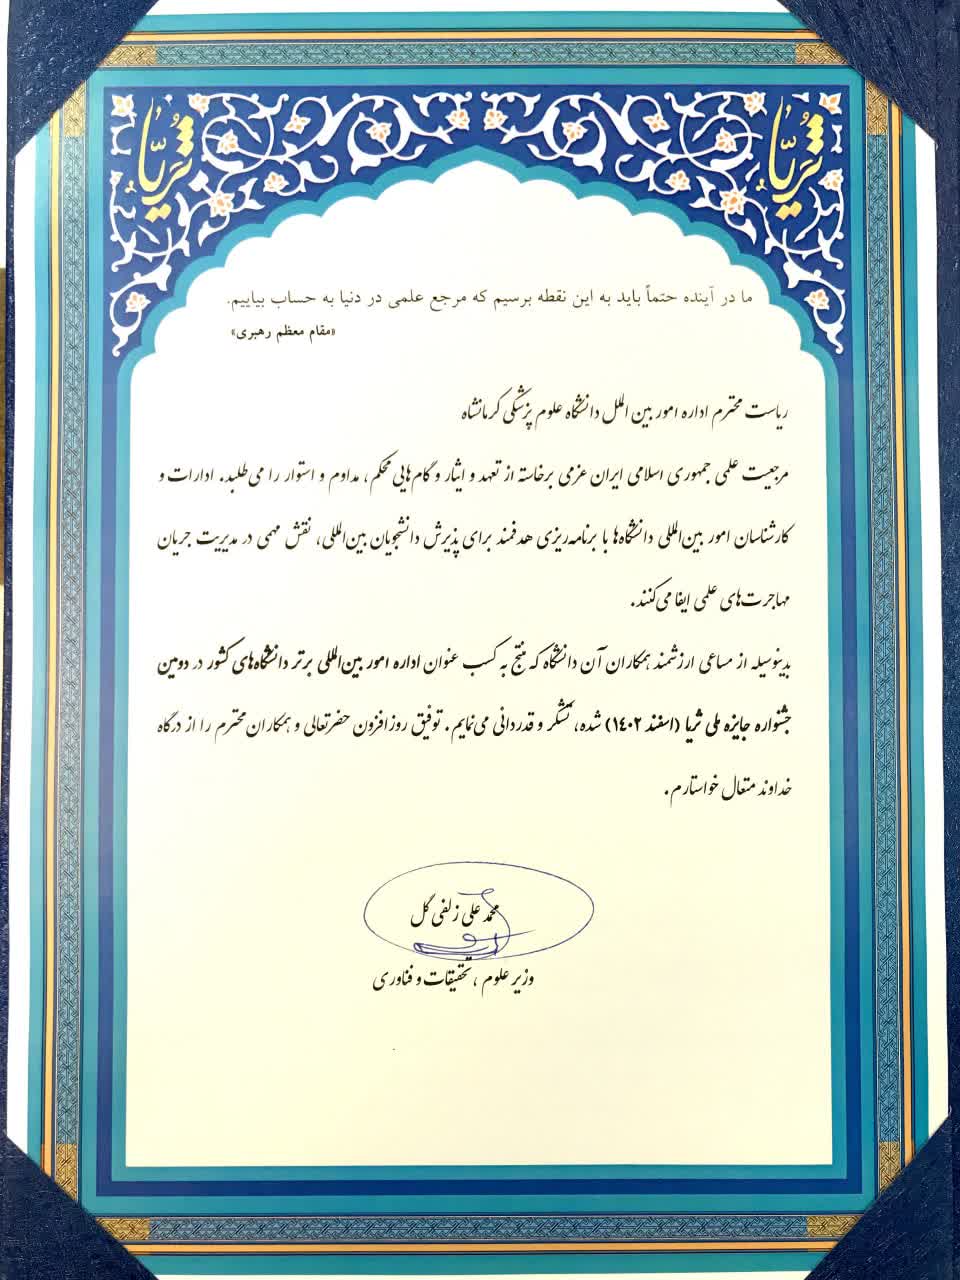 ثریا
ثریا
ما در آینده حتماً باید به این نقطه برسیم که مرجع علمی در دنیا به حساب بیاییم.
«مقام معظم رهبری»
ریاست محترم اداره امور بین الملل دانشگاه علوم پزشکی کرمانشاه
مرجعیت علمی جمهوری اسلامی ایران عزمی برخاسته از تعهد و ایثار و گام‌هایی محکم، مداوم و استوار را می‌طلبد. ادارات و
کارشناسان امور بین‌المللی دانشگاه‌ها با برنامه‌ریزی هدفمند برای پذیرش دانشجویان بین‌المللی، نقش مهمی در مدیریت جریان
مهاجرت‌های علمی ایفا می‌کنند.
بدینوسیله از مساعی ارزشمند همکاران آن دانشگاه که منتج به کسب عنوان اداره امور بین‌المللی برتر دانشگاه‌های کشور در دومین
جشنواره جایزه ملی ثریا (اسفند ۱۴۰۲) شده، تشکر و قدردانی می‌نمایم. توفیق روزافزون حضرتعالی و همکاران محترم را از درگاه
خداوند متعال خواستارم.
محمد علی زلفی گل
وزیر علوم، تحقیقات و فناوری